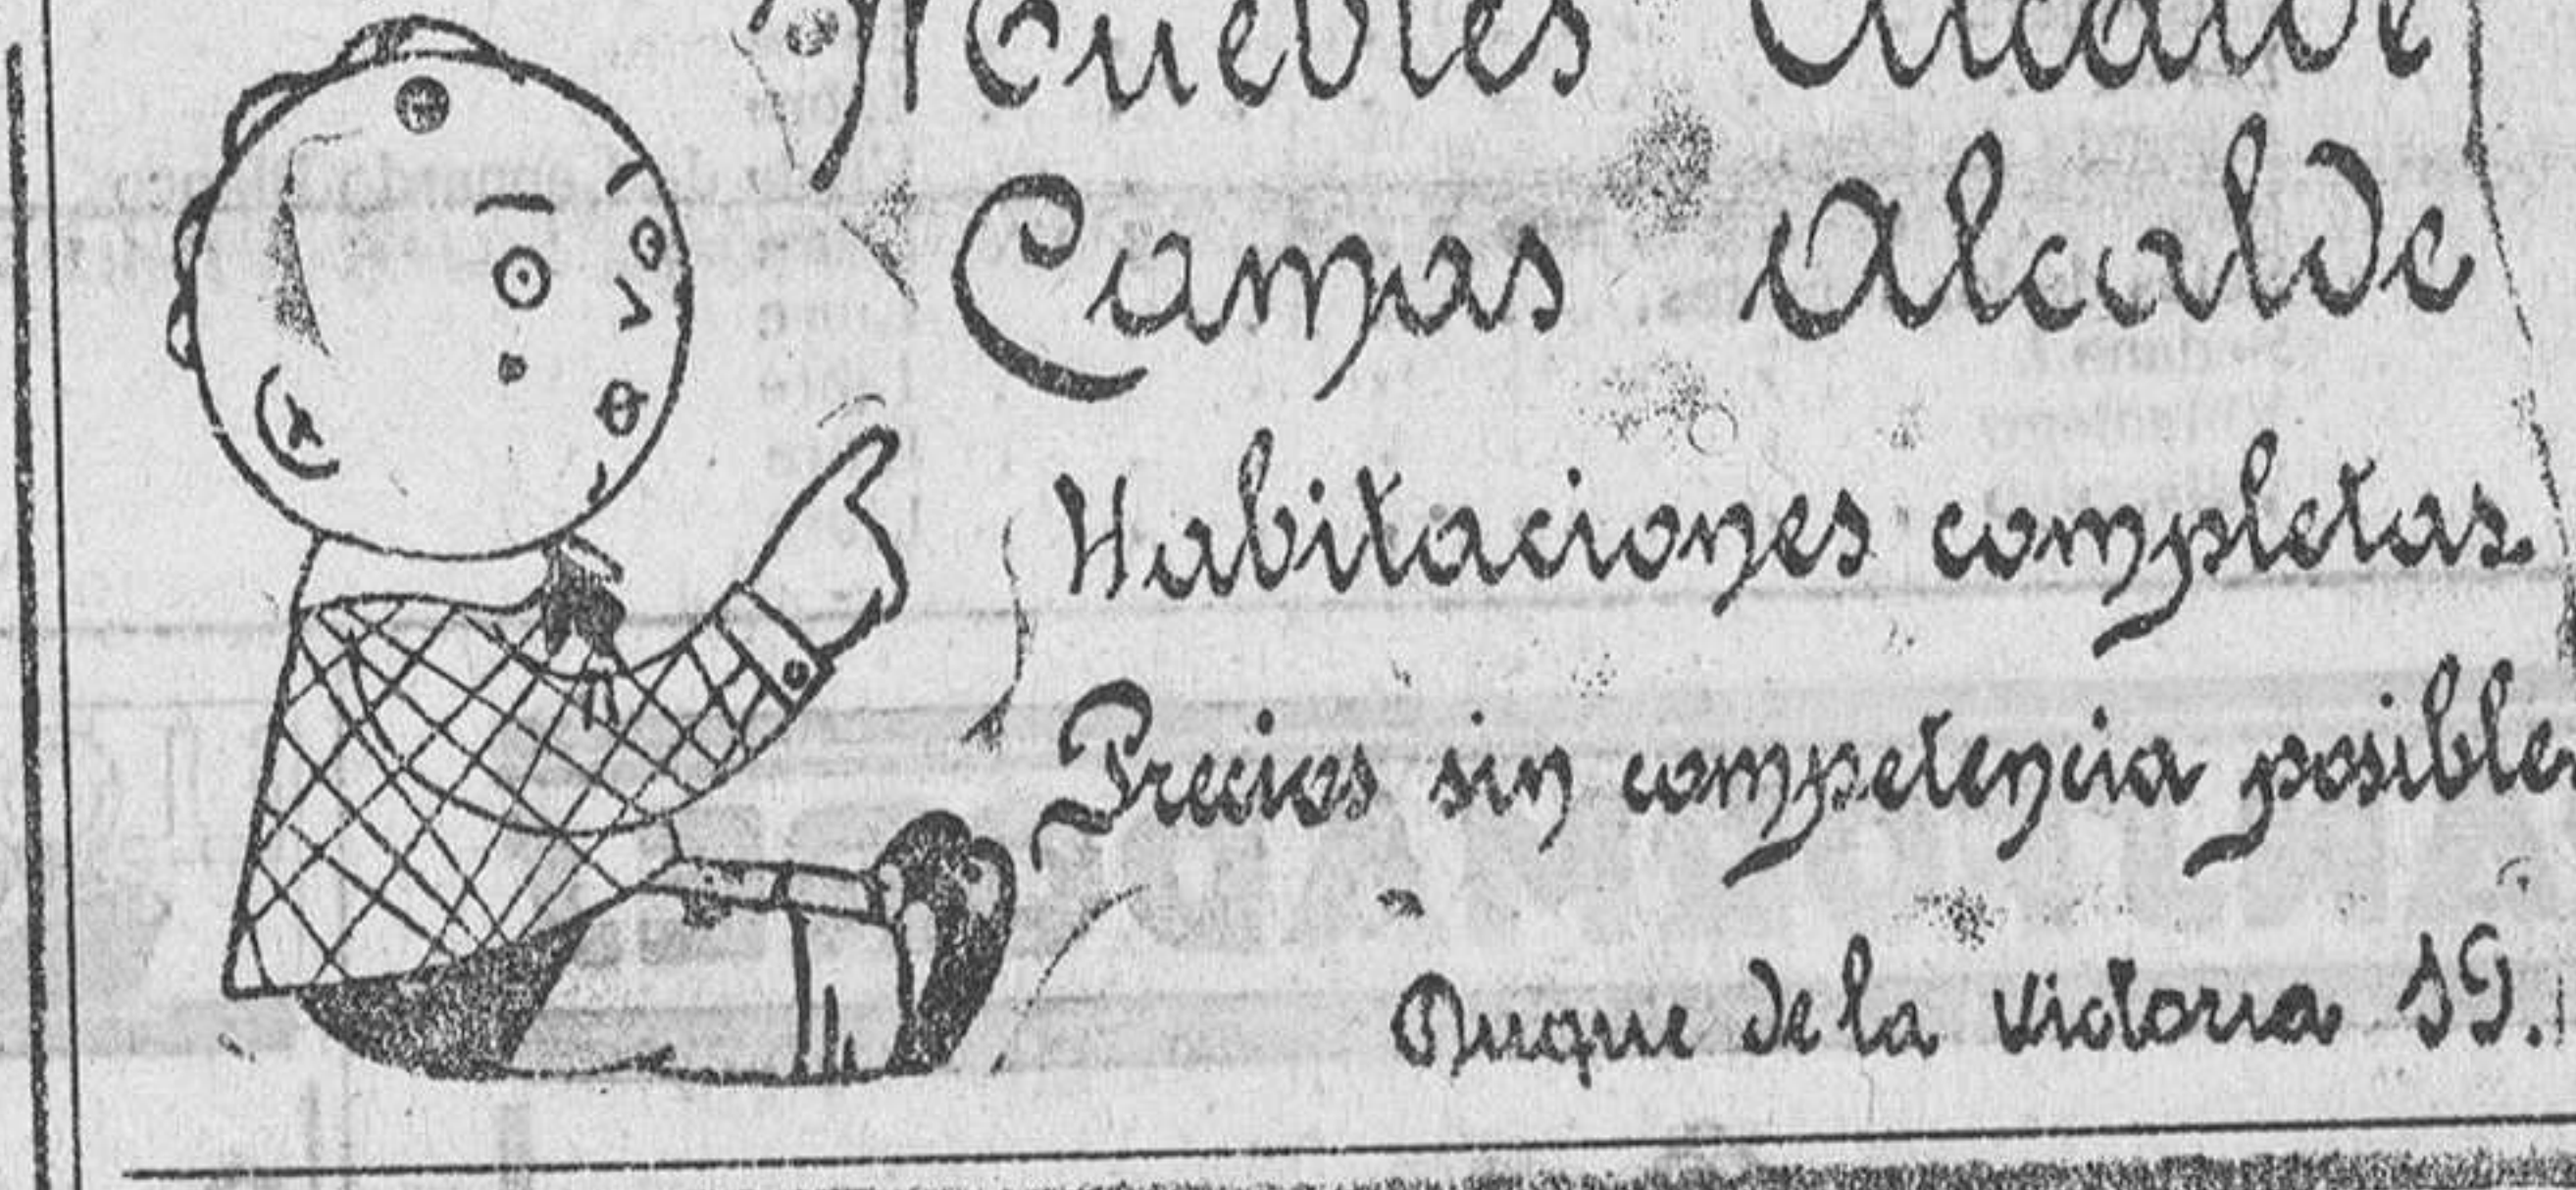 Muebles Alcalde
Camas Alcalde
Habitaciones completas.
Precios sin competencia posible
Duque de la Victoria 19.